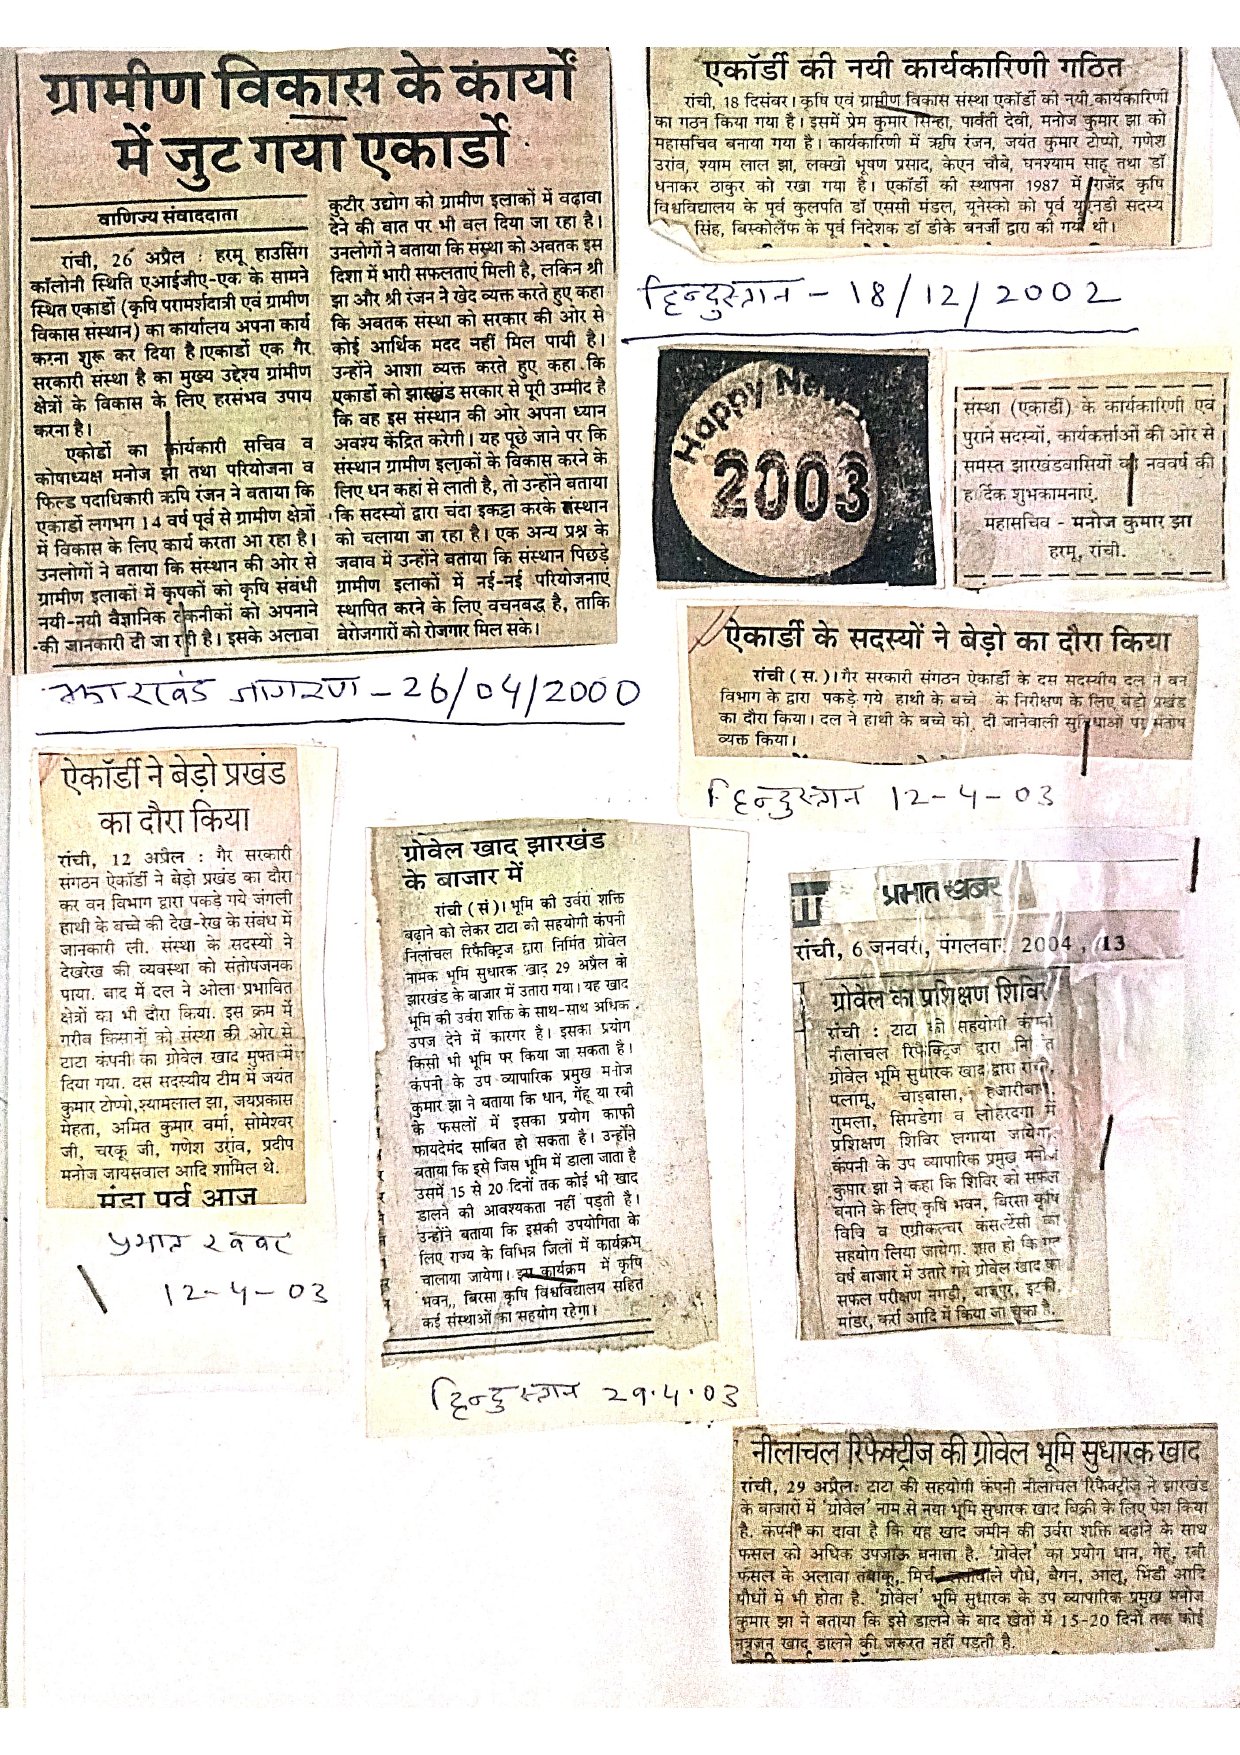 ग्रामीण विकास के कार्यों
में जुट गया एकार्डो
वाणिज्य संवाददाता
रांची, 26 अप्रैल : हरमू हाउसिंग
कॉलोनी स्थिति एआईजीए-एक के सामने
स्थित एकार्डो (कृषि परामर्शदात्री एवं ग्रामीण
विकास संस्थान) का कार्यालय अपना कार्य
करना शुरू कर दिया है।एकार्डो एक गैर
सरकारी संस्था है का मुख्य उद्देश्य ग्रामीण
क्षेत्रों के विकास के लिए हरसंभव उपाय
करना है।
एकोर्डो का कार्यकारी सचिव व
कोषाध्यक्ष मनोज झा तथा परियोजना व
फिल्ड पदाधिकारी ऋषि रंजन ने बताया कि
एकार्डो लगभग 14 वर्ष पूर्व से ग्रामीण क्षेत्रों
में विकास के लिए कार्य करता आ रहा है।
उनलोगों ने बताया कि संस्थान की ओर से
ग्रामीण इलाकों में कृषकों को कृषि संबंधी
नयी-नयी वैज्ञानिक तकनीकों को अपनाने
की जानकारी दी जा रही है। इसके अलावा
कुटीर उद्योग को ग्रामीण इलाकों में बढ़ावा
देने की बात पर भी बल दिया जा रहा है।
उनलोगों ने बताया कि संस्था को अबतक इस
दिशा में भारी सफलताएं मिली है, लकिन श्री
झा और श्री रंजन ने खेद व्यक्त करते हुए कहा
कि अबतक संस्था को सरकार की ओर से
कोई आर्थिक मदद नहीं मिल पायी है।
उन्होंने आशा व्यक्त करते हुए कहा कि
एकार्डो को झारखंड सरकार से पूरी उम्मीद है
कि वह इस संस्थान की ओर अपना ध्यान
अवश्य केंद्रित करेगी। यह पूछे जाने पर कि
संस्थान ग्रामीण इलाकों के विकास करने के
लिए धन कहां से लाती है, तो उन्होंने बताया
कि सदस्यों द्वारा चंदा इकट्ठा करके संस्थान
को चलाया जा रहा है। एक अन्य प्रश्न के
जवाव में उन्होंने बताया कि संस्थान पिछड़े
ग्रामीण इलाकों में नई-नई परियोजनाएं
स्थापित करने के लिए वचनबद्ध है, ताकि
बेरोजगारों को रोजगार मिल सके।
झारखंड जागरण - 26/04/2000
एकॉर्डी की नयी कार्यकारिणी गठित
रांची, 18 दिसंबर। कृषि एवं ग्रामीण विकास संस्था एकॉर्डी की नयी कार्यकारिणी
का गठन किया गया है। इसमें प्रेम कुमार सिन्हा, पार्वती देवी, मनोज कुमार झा को
महासचिव बनाया गया है। कार्यकारिणी में ऋषि रंजन, जयंत कुमार टोप्पो, गणेश
उरांव, श्याम लाल झा, लक्खी भूषण प्रसाद, केएन चौबे, घनश्याम साहू तथा डॉ
धनाकर ठाकुर को रखा गया है। एकॉर्डी की स्थापना 1987 में राजेंद्र कृषि
विश्वविद्यालय के पूर्व कुलपति डॉ एससी मंडल, यूनेस्को को पूर्व सदस्य
सिंह, बिस्कोलैंफ के पूर्व निदेशक डॉ डीके बनर्जी द्वारा की गयी थी।
हिन्दुस्तान - 18/12/2002
Happy New
2003
संस्था (एकार्डी) के कार्यकारिणी एवं
पुराने सदस्यों, कार्यकर्त्ताओं की ओर से
समस्त झारखंडवासियों को नववर्ष की
हार्दिक शुभकामनाएं.
महासचिव - मनोज कुमार झा
हरमू, रांची.
ऐकार्डी के सदस्यों ने बेड़ो का दौरा किया
रांची (स.)। गैर सरकारी संगठन ऐकार्डी के दस सदस्यीय दल ने वन
विभाग के द्वारा पकड़े गये हाथी के बच्चे के निरीक्षण के लिए बेड़ो प्रखंड
का दौरा किया। दल ने हाथी के बच्चे को दी जानेवाली सुविधाओं पर संतोष
व्यक्त किया।
हिन्दुस्तान 12-4-03
ऐकॉर्डी ने बेड़ो प्रखंड
का दौरा किया
रांची, 12 अप्रैल : गैर सरकारी
संगठन ऐकॉर्डी ने बेड़ो प्रखंड का दौरा
कर वन विभाग द्वारा पकड़े गये जंगली
हाथी के बच्चे की देख-रेख के संबंध में
जानकारी ली. संस्था के सदस्यों ने
देखरेख की व्यवस्था को संतोषजनक
पाया. बाद में दल ने ओला प्रभावित
क्षेत्रों का भी दौरा किया. इस क्रम में
गरीब किसानों को संस्था की ओर से
टाटा कंपनी का ग्रोवेल खाद मुफ्त में
दिया गया. दस सदस्यीय टीम में जयंत
कुमार टोप्पो,श्यामलाल झा, जयप्रकास
मेहता, अमित कुमार वर्मा, सोमेश्वर
जी, चरकू जी, गणेश उरांव, प्रदीप
मनोज जायसवाल आदि शामिल थे.
मंडा पर्व आज
प्रभात खबर
12-4-03
ग्रोवेल खाद झारखंड
के बाजार में
रांची (सं)। भूमि की उर्वरा शक्ति
बढ़ाने को लेकर टाटा की सहयोगी कंपनी
निलांचल रिफैक्ट्रिज द्वारा निर्मित ग्रोवेल
नामक भूमि सुधारक खाद 29 अप्रैल को
झारखंड के बाजार में उतारा गया। यह खाद
भूमि की उर्वरा शक्ति के साथ-साथ अधिक
उपज देने में कारगर है। इसका प्रयोग
किसी भी भूमि पर किया जा सकता है।
कंपनी के उप व्यापारिक प्रमुख मनोज
कुमार झा ने बताया कि धान, गेंहू या रबी
के फसलों में इसका प्रयोग काफी
फायदेमंद साबित हो सकता है। उन्होंने
बताया कि इसे जिस भूमि में डाला जाता है
उसमें 15 से 20 दिनों तक कोई भी खाद
डालने की आवश्यकता नहीं पड़ती है।
उन्होंने बताया कि इसकी उपयोगिता के
लिए राज्य के विभिन्न जिलों में कार्यक्रम
चालाया जायेगा। इस कार्यक्रम में कृषि
भवन,, बिरसा कृषि विश्वविद्यालय सहित
कई संस्थाओं का सहयोग रहेगा।
हिन्दुस्तान 29.4.03
प्रभात खबर
रांची, 6 जनवरी, मंगलवार 2004, 13
ग्रोवेल का प्रशिक्षण शिविर
रांची : टाटा की सहयोगी कंपनी
नीलाचल रिफैक्ट्रिज द्वारा निर्मित
ग्रोवेल भूमि सुधारक खाद द्वारा रांची,
पलामू, चाइबासा, हजारीबाग,
गुमला, सिमडेगा व लोहरदगा में
प्रशिक्षण शिविर लगाया जायेगा.
कंपनी के उप व्यापारिक प्रमुख मनोज
कुमार झा ने कहा कि शिविर को सफल
बनाने के लिए कृषि भवन, बिरसा कृषि
विवि व एग्रीकल्चर कंसल्टेंसी का
सहयोग लिया जायेगा. ज्ञात हो कि गत
वर्ष बाजार में उतारे गये ग्रोवेल खाद का
सफल परीक्षण नगड़ी, बाजपुर, इटकी,
मांडर, कर्रा आदि में किया जा चुका है.
नीलाचल रिफैक्ट्रीज की ग्रोवेल भूमि सुधारक खाद
रांची, 29 अप्रैल: टाटा की सहयोगी कंपनी नीलाचल रिफैक्ट्रीज ने झारखंड
के बाजारों में 'ग्रोवेल' नाम से नया भूमि सुधारक खाद बिक्री के लिए पेश किया
है. कंपनी का दावा है कि यह खाद जमीन की उर्वरा शक्ति बढ़ाने के साथ
फसल को अधिक उपजाऊ बनाता है. 'ग्रोवेल' का प्रयोग धान, गेहूं, रबी
फसल के अलावा तंबाकू, मिर्च, पौधे, बैगन, आलू, भिंडी आदि
पौधों में भी होता है. 'ग्रोवेल' भूमि सुधारक के उप व्यापारिक प्रमुख मनोज
कुमार झा ने बताया कि इसे डालने के बाद खेतों में 15-20 दिनों तक कोई
नत्रजन खाद डालने की जरूरत नहीं पड़ती है.